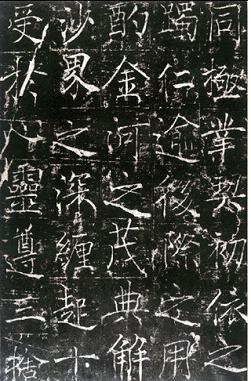 同極業契初依之
躅仁逾後際之用
酌金河之茂典解
沙界之深纏起十
受於心靈遵三